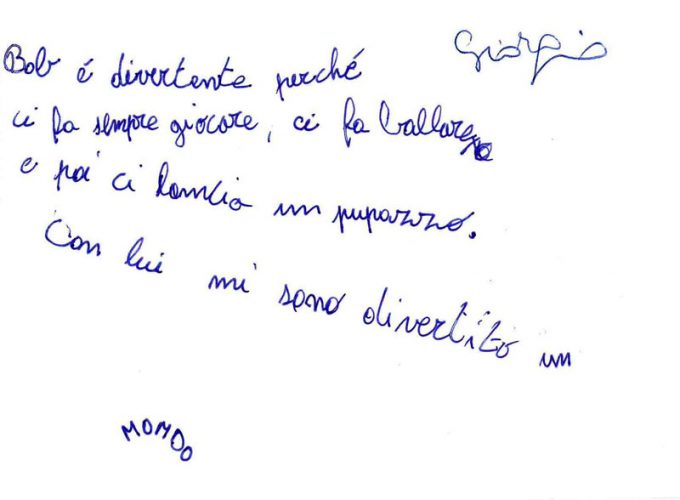 Giorgio
Bob é divertente perché
ci fa sempre giocare, ci fa ballare
e poi ci lancia un pupazzo.
Con lui mi sono divertito un
MONDO